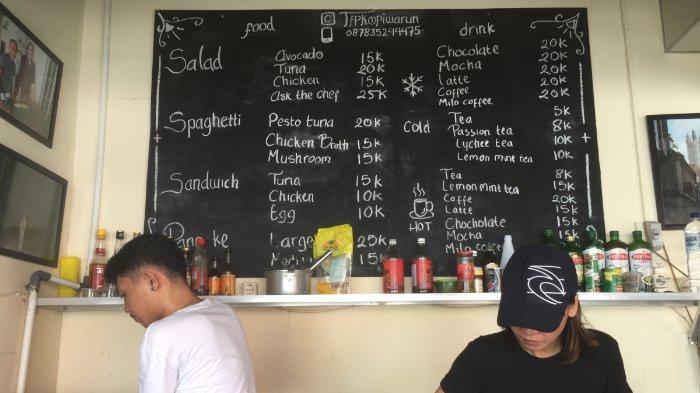 food
0878352444475
drink
Salad
Avocado 15K
Tuna 20K
Chicken 15K
Ask the chef 25K
Spaghetti
Pesto tuna 20K
Chicken Broth 15K
Mushroom 15K
Sandwich
Tuna 15K
Chicken 10K
Egg 10K
Large 25K
15K
Cold
Chocolate 20K
Mocha 20K
Latte 20K
Coffee 20K
Milo coffee 20K
Tea 5K
Passion tea 8K
Lychee tea 10K
Lemon mint tea 10K
HOT
Tea 8K
Lemon mint tea 15K
Coffe 20K
Latte 15K
Chocholate 15K
Mocha 15K
Milo coffee